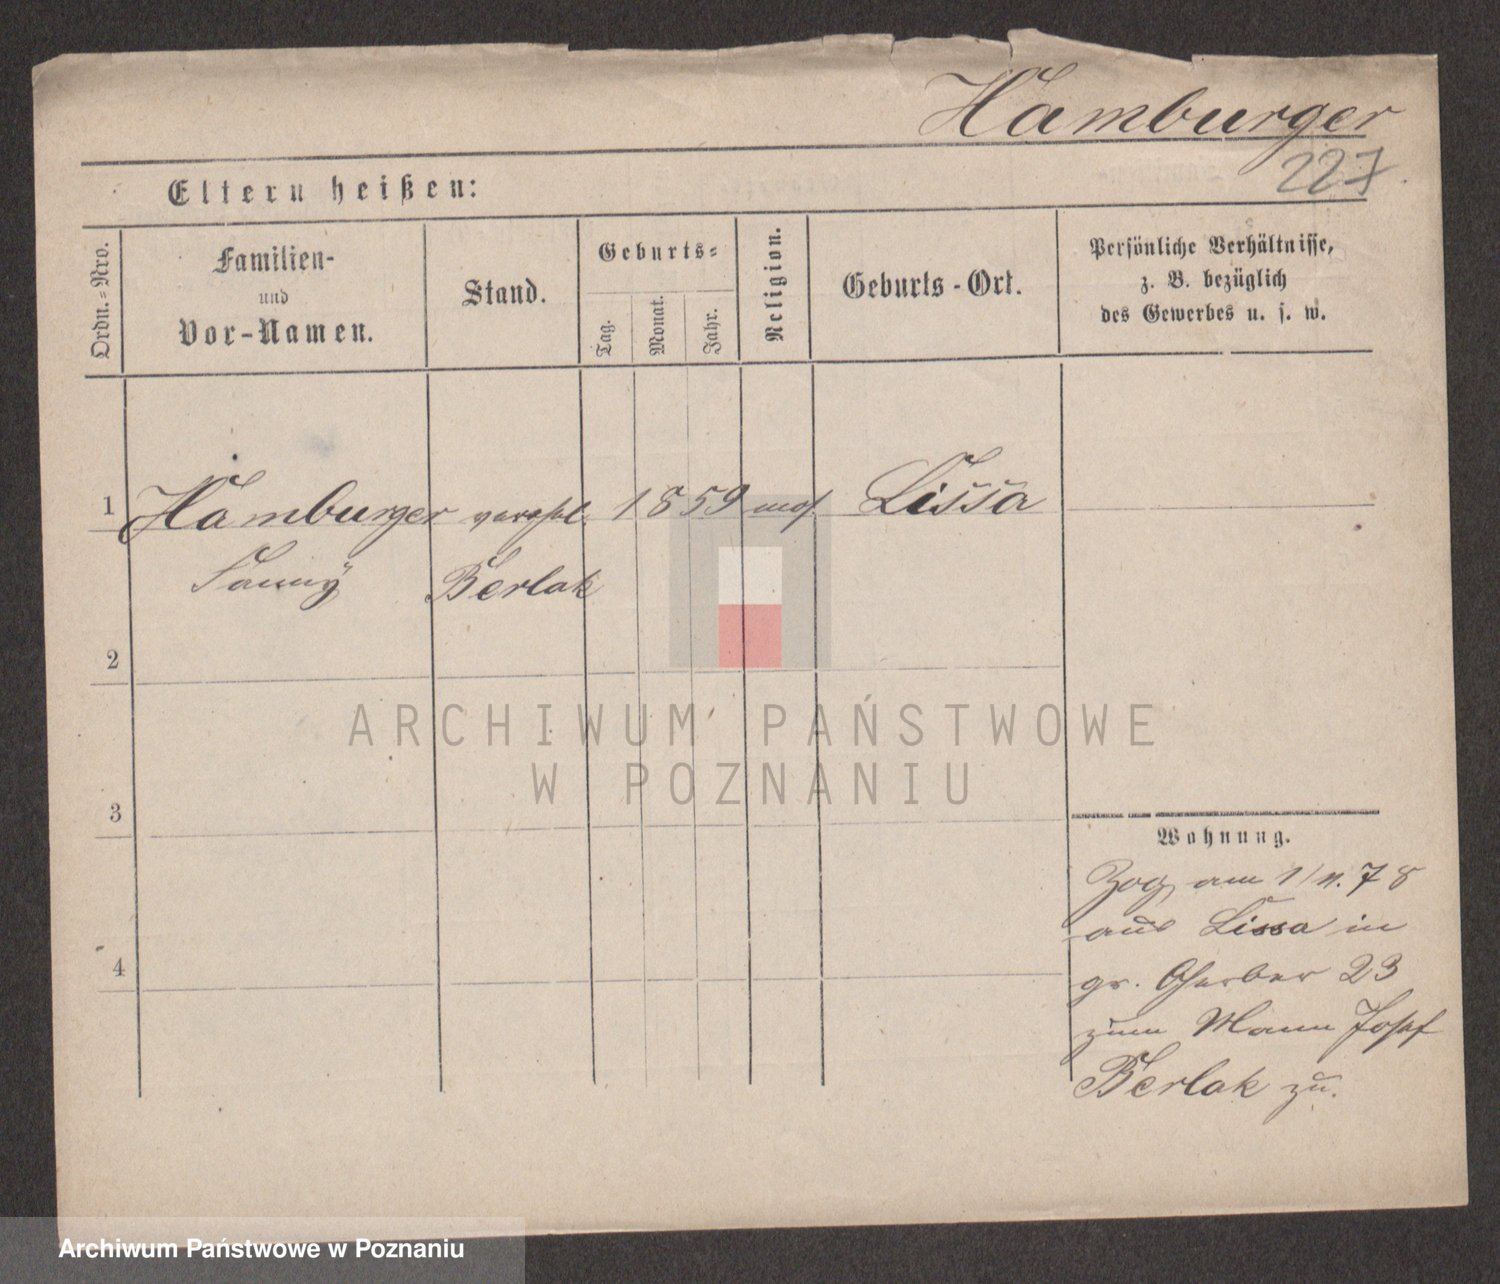 Hamburger
227
Eltern heißen:
Ordn.=Nro.
Familien-
und
Vor-Namen.
Stand.
Geburts=
Tag.
Monat.
Jahr.
Religion.
Geburts-Ort.
Persönliche Verhältnisse,
z. B. bezüglich
des Gewerbes u. s. w.
1 Hamburger verehel. 1859 mos. Lissa
Fanny Berlak
2
3
4
ARCHIWUM PAŃSTWOWE
W POZNANIU
Wohnung.
Zog am 1/11.78
aus Lissa in
gr. Gerber 23
zum Mann Josef
Berlak zu.
Archiwum Państwowe w Poznaniu